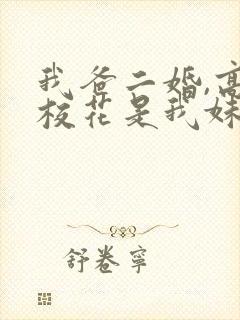 我爸二婚,高
校花是我妹
舒卷寧